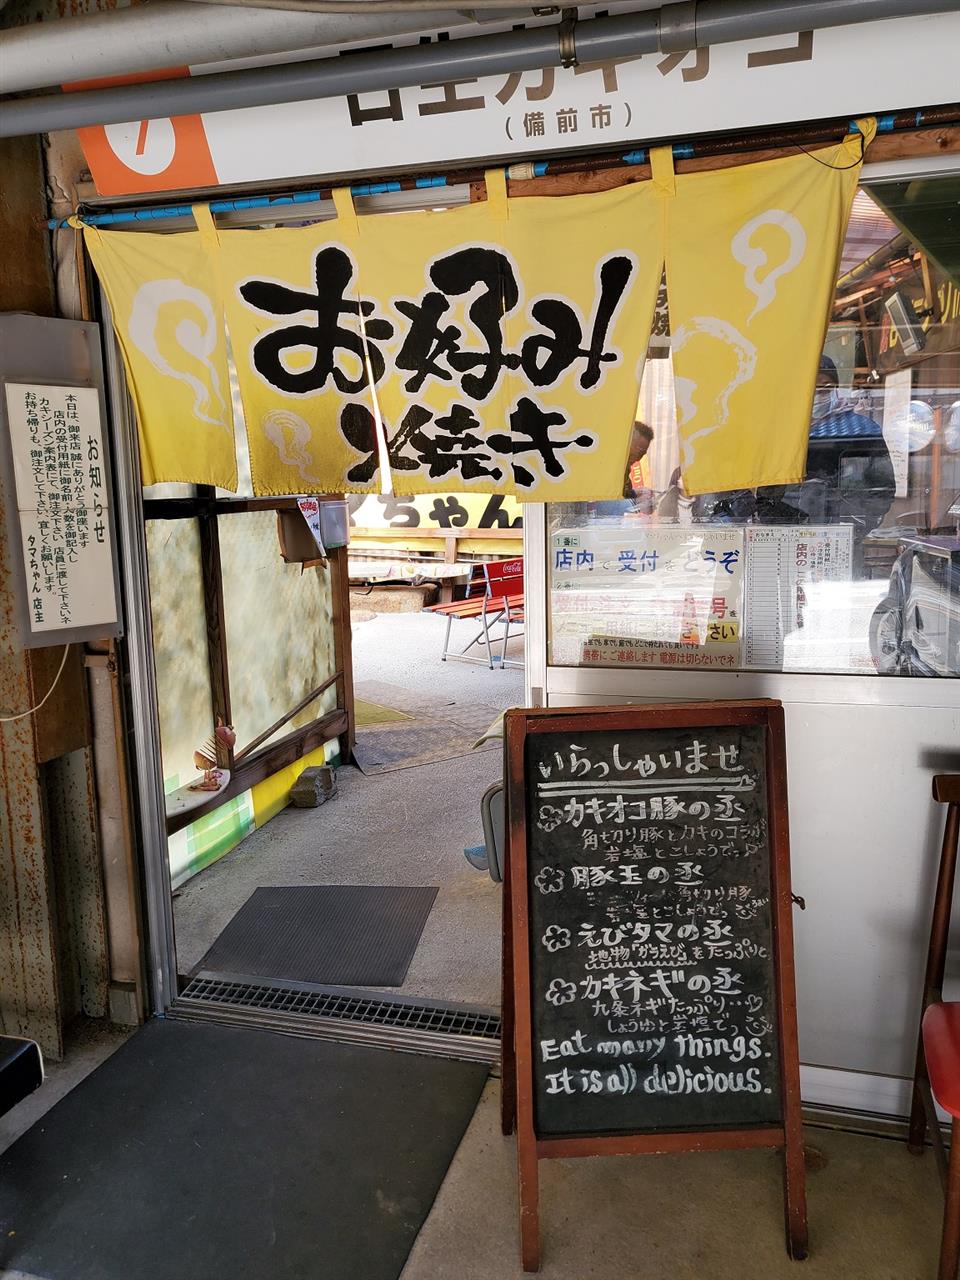 7
日生カキオコ
(備前市)
お好み
焼き
ちゃん
お知らせ
本日は、御来店誠にありがとう御座います
店内の受付用紙に御名前人数を御記入し
カキシーズン案内表にて、御注文下さい 店員に渡して下さいネ
お持ち帰りも、御注文して下さい 宜しくお願いします。
タマちゃん 店主
Coca-Cola
1番に
店内で受付をどうぞ
2番に
号を
さい
携帯にご連絡します 電源は切らないでネ
いらっしゃいませ
カキオコ豚の丞
角切り豚とカキのコラボ
岩塩とこしょうでっ
豚玉の丞
角切り豚
とこしょうでっ
えびタマの丞
地物「ガラえび」をたっぷりと
カキネギの丞
九条ネギたっぷり…
しょうゆと岩塩でっ
Eat many things.
It is all delicious.